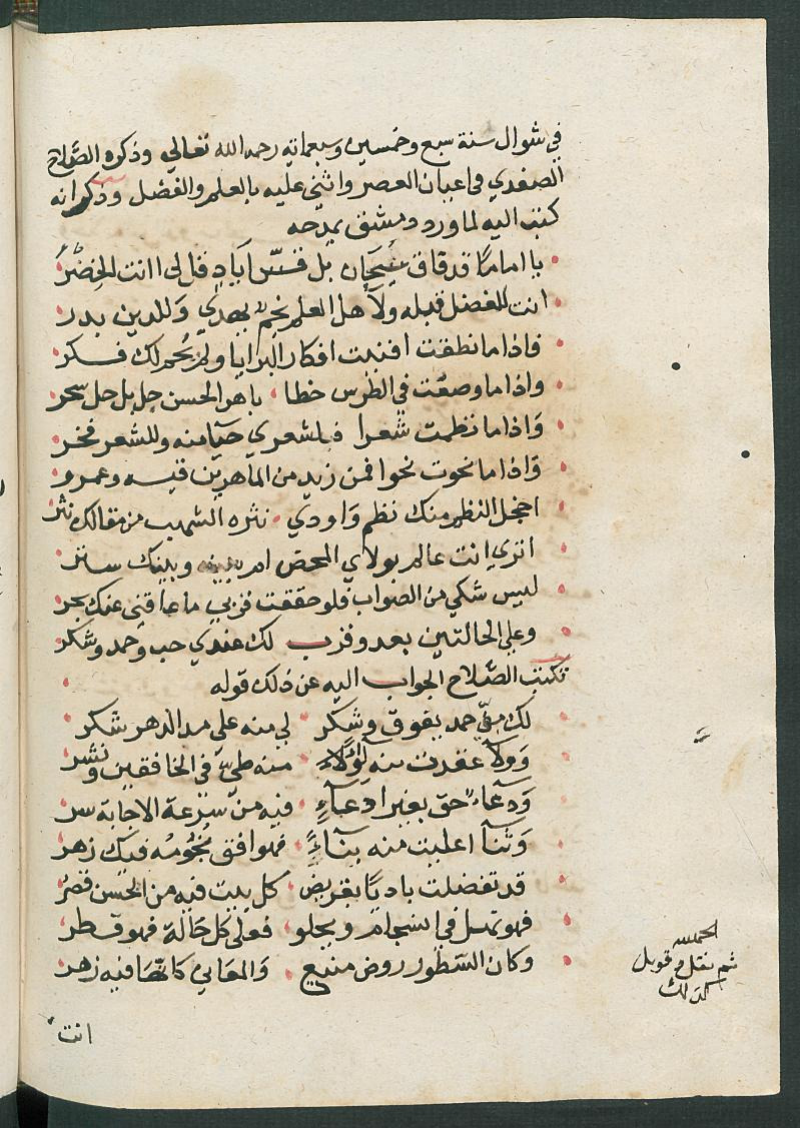 في شوال سنة سبع وخمسين وسبعمايه رحمه الله تعالي وذكره الصَّلاح
الصفدي في اعيان العصر واثني عليه بالعلم والفضل وذكر انه
كتب اليه لما ورد دمشق يمدحه
يا اماما قد فاق سَحبان بل قسّ ايادٍ قل لى اانت الخِضْرُ
انت للفضل قبله ولاهل العلم نجم يهدي وللدين بدر
فاذا ما نطقت افنيت افكار البرايا ولم يُحم لك فكر
واذا ما وضعت في الطرس خطا باهر الحسن جل بل حل سحر
وَاذا ما نظمت شعرا فبلشعري حيا منه وللشعر فخر
وَاذا ما نحوت نحوا فمن زيد من الماهرين فيه وعمرو
اخجل النظم منك نظم وَاودي نثره الشهب من مقالك نثر
اتري انت عالم بولاي المحض ام بيني وبينك ستر
ليس شكي من الصواب فلو حققت قربي ما عاقني عنك بحر
وعلي الحالتين بعد وقرب لك عندي حب وحمد وشكر
فكتب الصَّلاح الجواب اليه عن ذلك قوله
لك منّي حمد يفوق وشكر لي منه علي مدا الدهر شكر
وَولآ عقدت منه لِوَاءً منه طيّ في الخافقين ونشر
وَدعاء حق بغير ادعآءٍ فيه من سرعة الاجابة سر
وَثنآ اعليت منه بنآءً فهو افق نجُومُه فيك زهر
قد تفضلت باديًا بقريض كل بيت فيه من الحسن قصرُ
فهو تمل في انسجام ويحلو فعلي كل حَالة فهو قطر
وكان السّطور روض منيع وَالمعاني كانها فيه زهر
انت
الحمد لله
ثم نقل وقوبل
كذلك